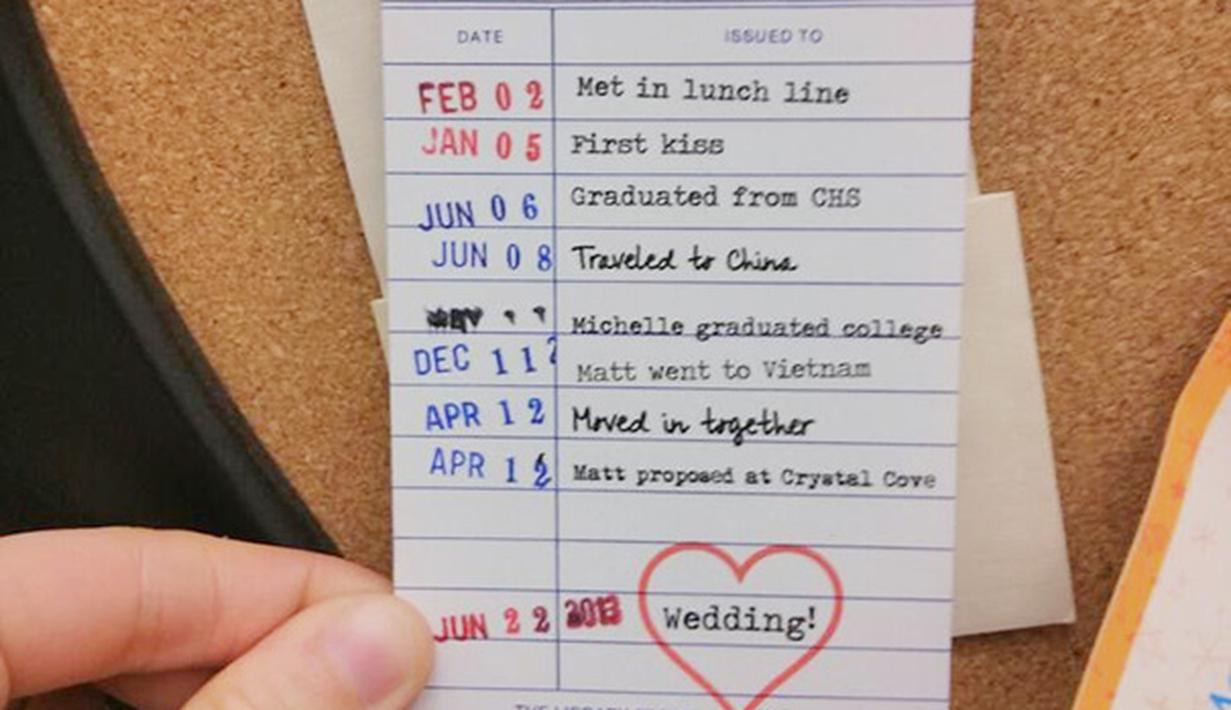 DATE ISSUED TO
FEB 02 Met in lunch line
JAN 05 First kiss
JUN 06 Graduated from CHS
JUN 08 Traveled to China
MAY Michelle graduated college
DEC 11 Matt went to Vietnam
APR 12 Moved in together
APR 12 Matt proposed at Crystal Cove
JUN 22 2013 Wedding!